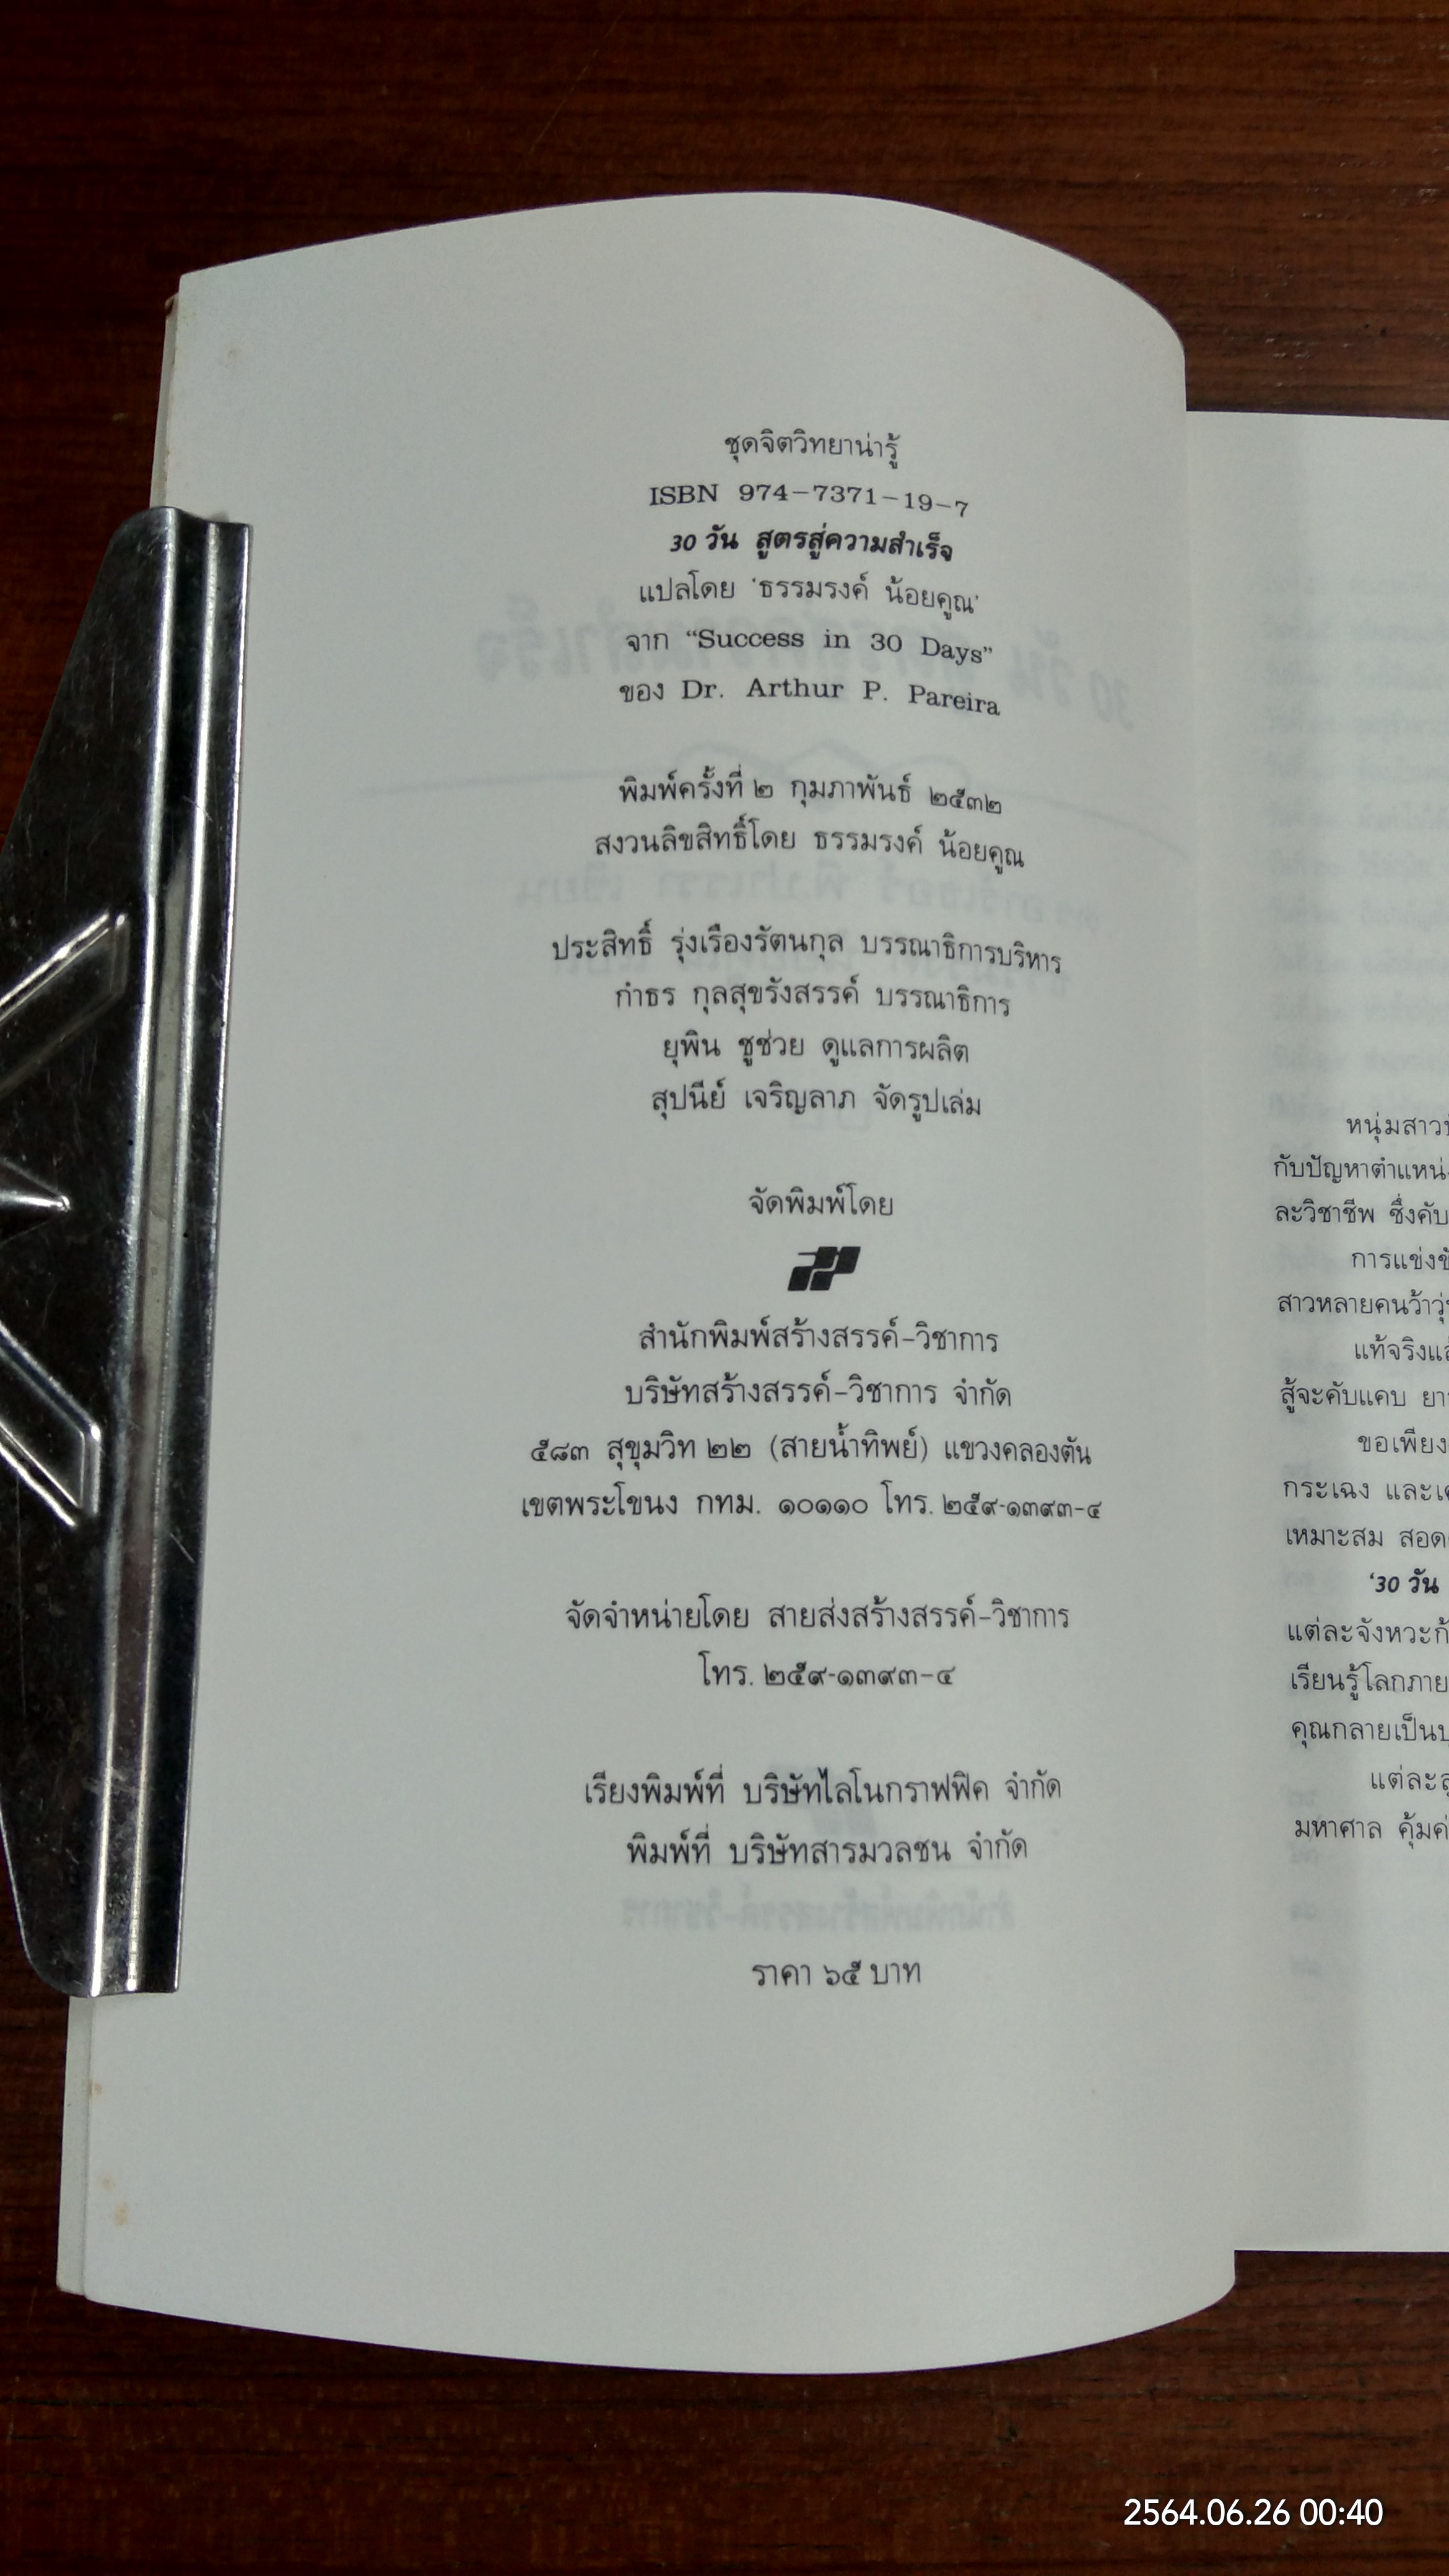 ชุดจิตวิทยาน่ารู้
ISBN 974-7371-19-7
30 วัน สูตรสู่ความสำเร็จ
แปลโดย 'ธรรมรงค์ น้อยคูณ'
จาก "Success in 30 Days"
ของ Dr. Arthur P. Pareira
พิมพ์ครั้งที่ ๒ กุมภาพันธ์ ๒๕๓๒
สงวนลิขสิทธิ์โดย ธรรมรงค์ น้อยคูณ
ประสิทธิ์ รุ่งเรืองรัตนกุล บรรณาธิการบริหาร
กำธร กุลสุขรังสรรค์ บรรณาธิการ
ยุพิน ชูช่วย ดูแลการผลิต
สุปนีย์ เจริญลาภ จัดรูปเล่ม
จัดพิมพ์โดย
สำนักพิมพ์สร้างสรรค์-วิชาการ
บริษัทสร้างสรรค์-วิชาการ จำกัด
๕๘๓ สุขุมวิท ๒๒ (สายน้ำทิพย์) แขวงคลองตัน
เขตพระโขนง กทม. ๑๐๑๑๐ โทร. ๒๕๙-๑๓๙๓-๔
จัดจำหน่ายโดย สายส่งสร้างสรรค์-วิชาการ
โทร. ๒๕๙-๑๓๙๓-๔
เรียงพิมพ์ที่ บริษัทไลโนกราฟฟิค จำกัด
พิมพ์ที่ บริษัทสารมวลชน จำกัด
ราคา ๖๕ บาท
หนุ่มสาว
กับปัญหาตำแหน่
ละวิชาชีพ ซึ่งคับ
การแข่งขั
สาวหลายคนว้าวุ่
แท้จริงแ
สู้จะคับแคบ ยา
ขอเพียง
กระเฉง และเ
เหมาะสม สอด
'30 วัน
แต่ละจังหวะก้
เรียนรู้โลกภาย
คุณกลายเป็นบ
แต่ละ
มหาศาล คุ้มค่
2564.06.26 00:40